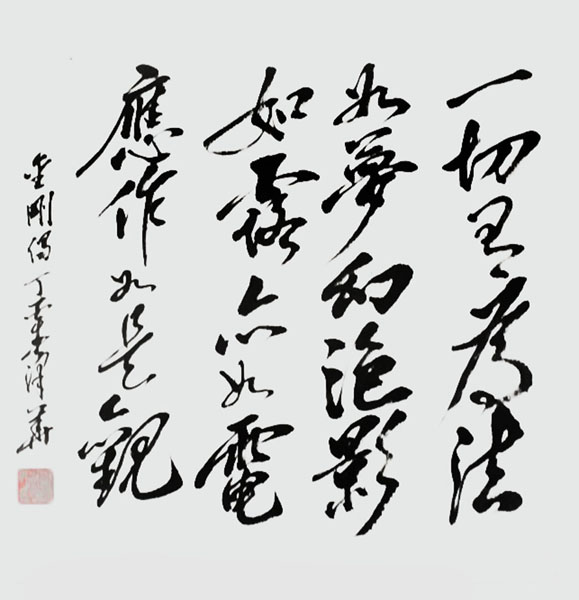 一切有為法
如夢幻泡影
如露亦如電
應作如是觀
金剛偈丁亥